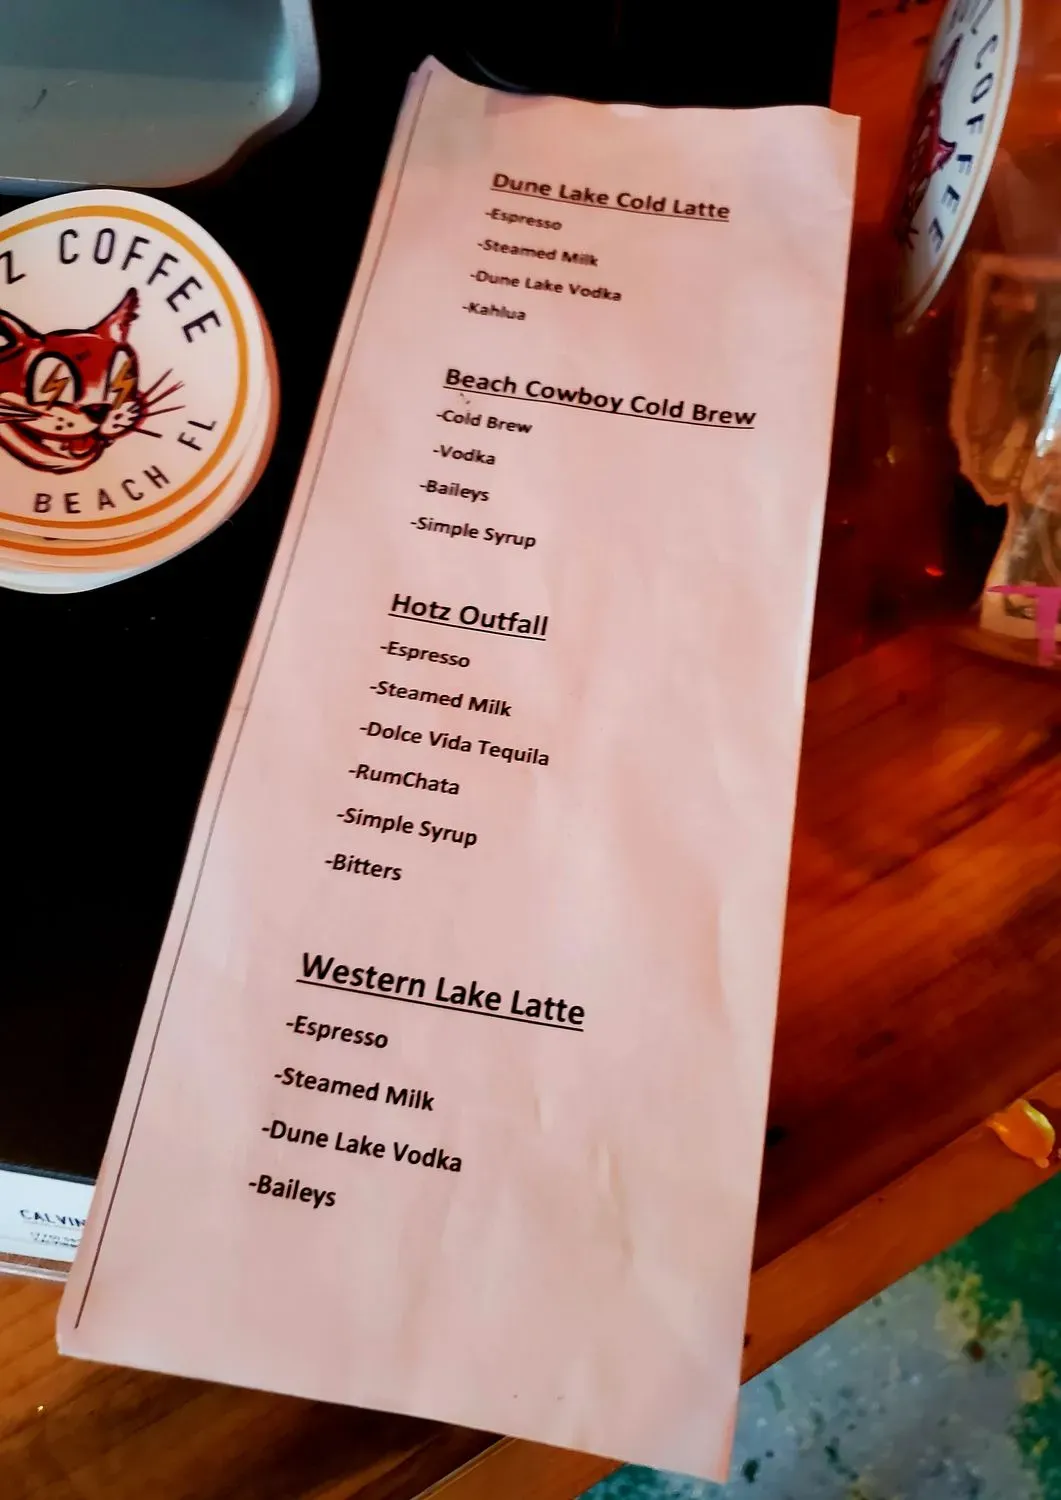 Dune Lake Cold Latte
-Espresso
-Steamed Milk
-Dune Lake Vodka
-Kahlua
Beach Cowboy Cold Brew
-Cold Brew
-Vodka
-Baileys
-Simple Syrup
Hotz Outfall
-Espresso
-Steamed Milk
-Dolce Vida Tequila
-RumChata
-Simple Syrup
-Bitters
Western Lake Latte
-Espresso
-Steamed Milk
-Dune Lake Vodka
-Baileys
Z COFFEE
BEACH FL
COFFEE
CALVIN